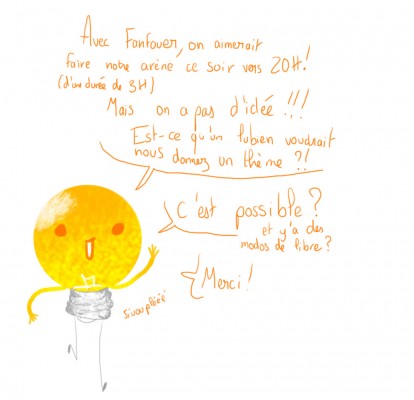 Avec Fanfouer, on aimerait
faire notre arène ce soir vers 20H!
(d'une durée de 3H)
Mais on a pas d'idée!!!
Est-ce qu'un lubien voudrait
nous donnez un thème?!
C'est possible?
et y'a des
modos de libre?
Merci!
sivouplééé